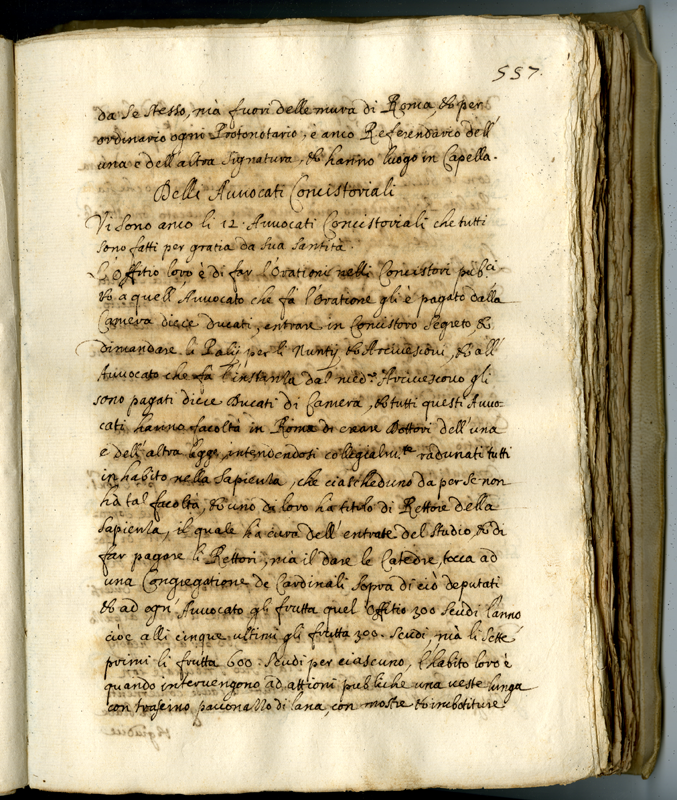 557.
da se stesso, mà fuori delle mura di Roma, & per
ordinario ogni Protonotario, è anco Referendario dell'
una e dell'altra signatura, & hanno luogo in Capella.
Delli Auuocati Concistoriali
Vi sono anco li 12. Auuocati Concistoriali che tutti
sono fatti per gratia da sua santità.
L'offitio loro è di far l'orationi nelli Concistori pub.ci
& a quell'Auuocato che fà l'oratione gli è pagato dalla
Camera diece ducati, entrare in Concistoro segreto, &
dimandare li Palij per li Nuntij & Arciuescoui, & all'
Auuocato che fa l'instanza dal med.o Arciuescouo gli
sono pagati diece Ducati di Camera, & tutti questi Auuo-
cati hanno facoltà in Roma di crear Dottori dell'una
e dell'altra legge, intendendosi collegialm.te radunati tutti
in habito nella sapienza, che ciascheduno da per se non
hà tal facoltà, & uno di loro ha titolo di Rettore della
sapienza, il quale ha cura dell'entrate del studio, & di
far pagare li Rettori, mà il dare le Catedre, tocca ad
una Congregatione de Cardinali sopra di ciò deputati
& ad ogni Auuocato gli frutta quel offitio 300 scudi l'anno
cioè alli cinque ultimi gli frutta 300. scudi, mà li sette
primi li frutta 600. scudi per ciascuno, l'habito loro è
quando interuengono ad attioni publiche una ueste lunga
con trascino pauonazzo di lana, con mostre &